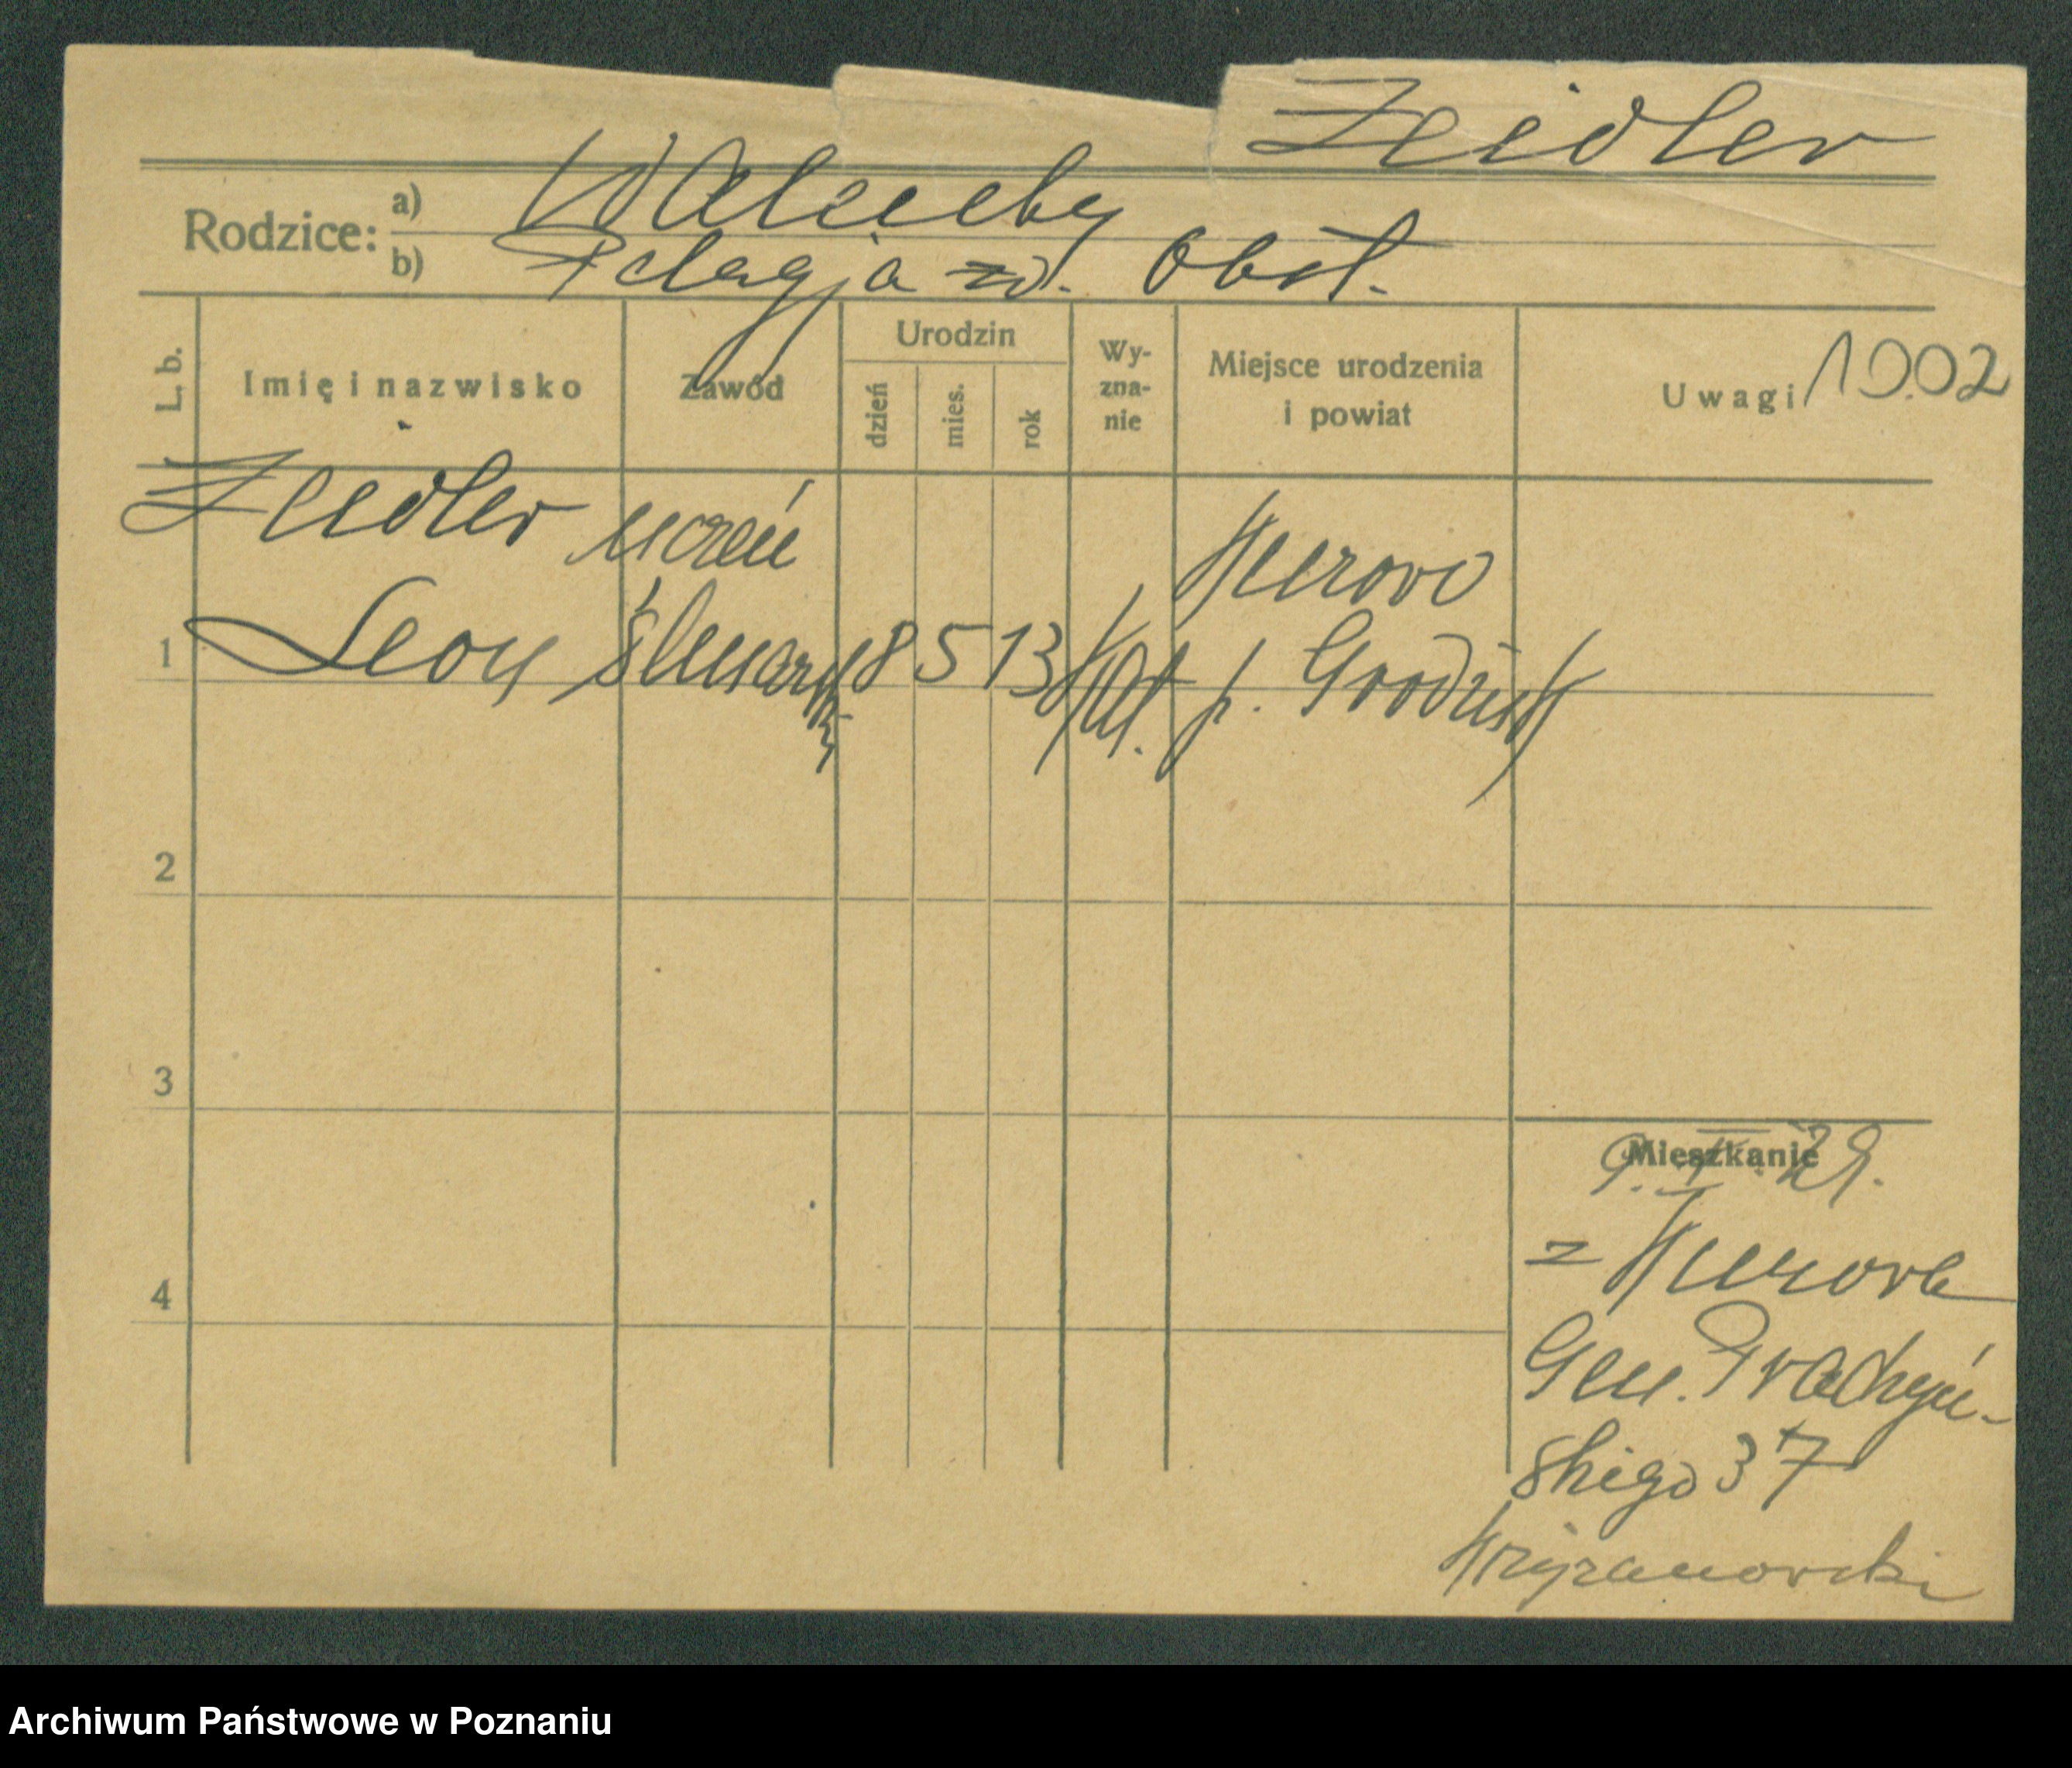 Zeidler
Rodzice: a) Walenty
b) Pelagja zd. Obst.
L. b. Imię i nazwisko Zawód Urodzin dzień mies. rok Wy-zna-nie Miejsce urodzenia i powiat Uwagi 1002
Zeidler uczeń Kurovo
1 Leon ślusarski 8 5 13 kat. p. Grodzisk
2
3
4
Mieszkanie
29.
z Kurova
Gen. Prądzyń-
skiego 37
Krzyżanovski
Archiwum Państwowe w Poznaniu